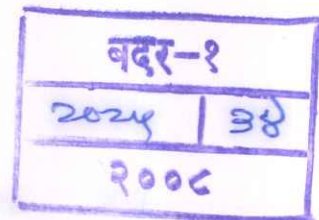 बदर-१
२०२५ | ३४
२००८